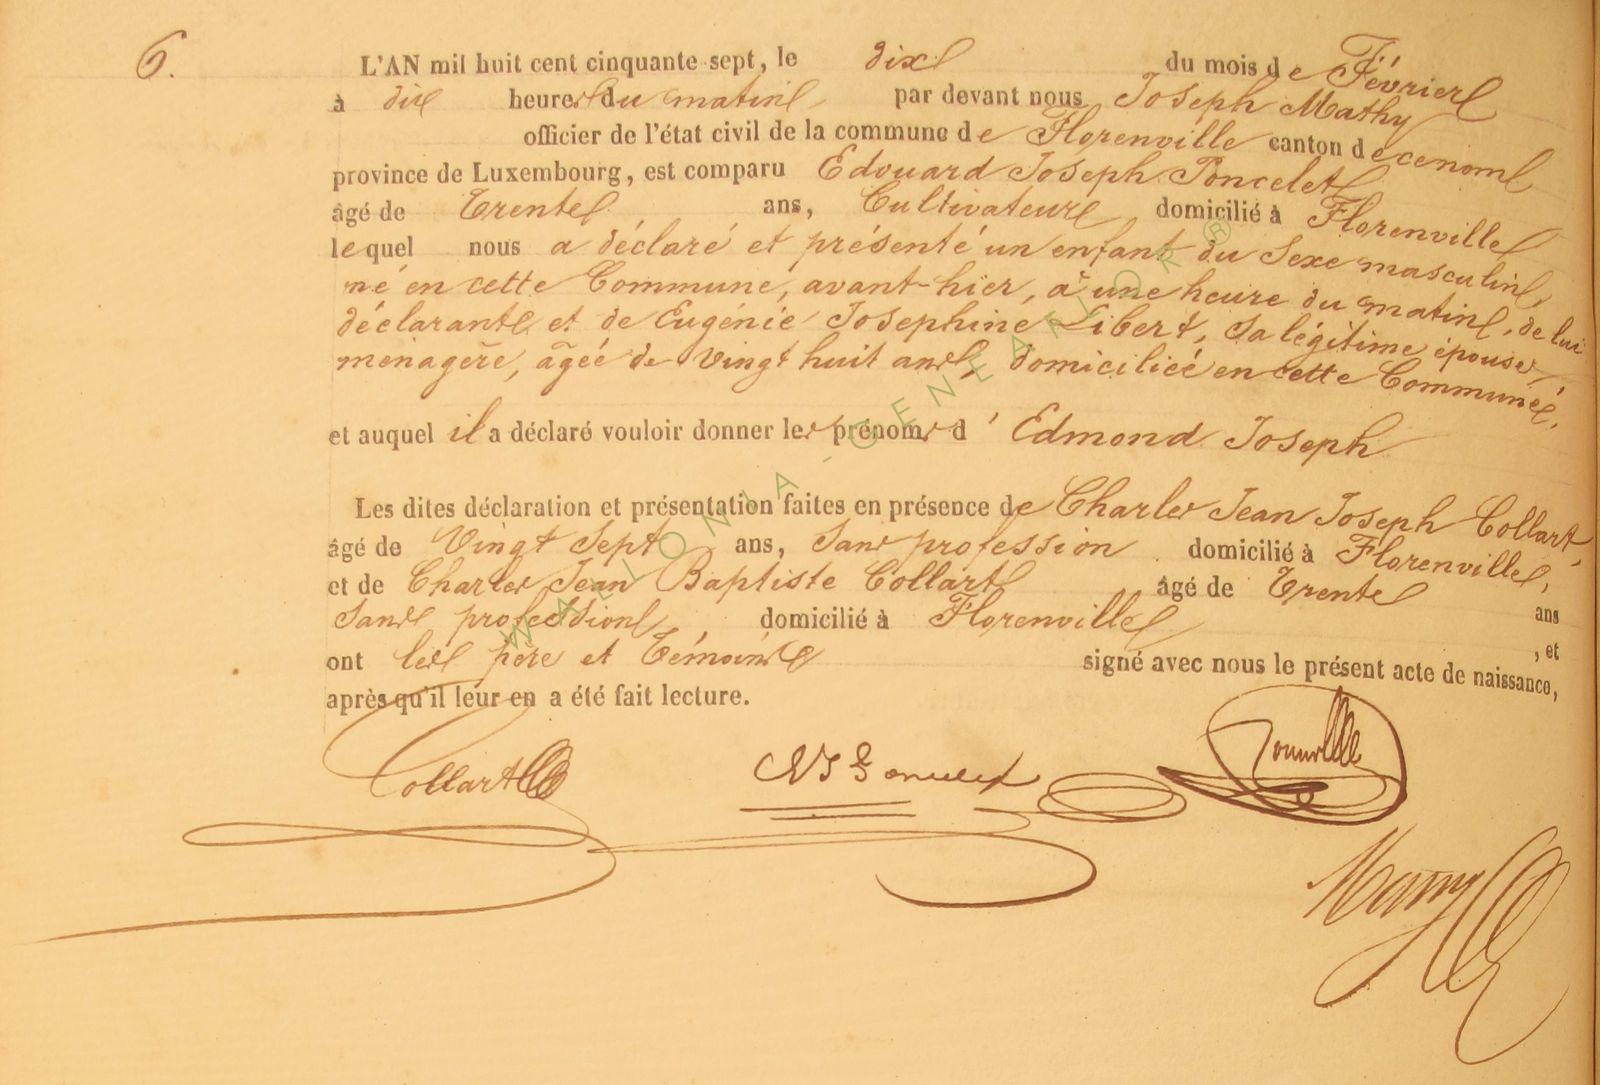 6.
L'AN mil huit cent cinquante-sept, le dix du mois de Février
à dix heures du matin, par devant nous Joseph Mathy
officier de l'état civil de la commune de Florenville canton de ce nom
province de Luxembourg, est comparu Edouard Joseph Poncelet
âgé de Trente ans, Cultivateur domicilié à Florenville
lequel nous a déclaré et présenté un enfant du Sexe masculin,
né en cette Commune, avant-hier, à une heure du matin, de lui
déclarant et de Eugénie Josephine Libert, sa légitime épouse,
ménagère, âgée de vingt huit ans, domiciliée en cette Commune.
et auquel il a déclaré vouloir donner les prénoms d' Edmond Joseph
Les dites déclaration et présentation faites en présence de Charles Jean Joseph Collart,
âgé de Vingt Sept ans, Sans profession domicilié à Florenville,
et de Charles Jean Baptiste Collart âgé de Trente ans
Sans profession, domicilié à Florenville , et
ont les père et témoins signé avec nous le présent acte de naissance,
après qu'il leur en a été fait lecture.
Collart
WALLONIA-GENEALOR ®